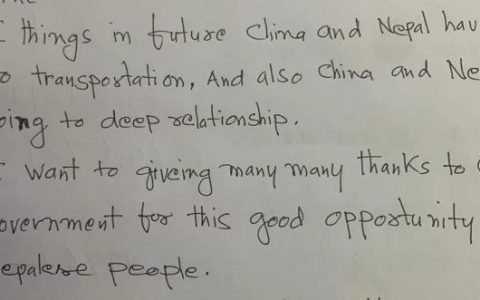 I things in future Clima and Nepal hav
o transportation, And also China and Ne
oing to deep relationship.
I want to giveing many many thanks to
overnment for this good opportunity
epalese people.